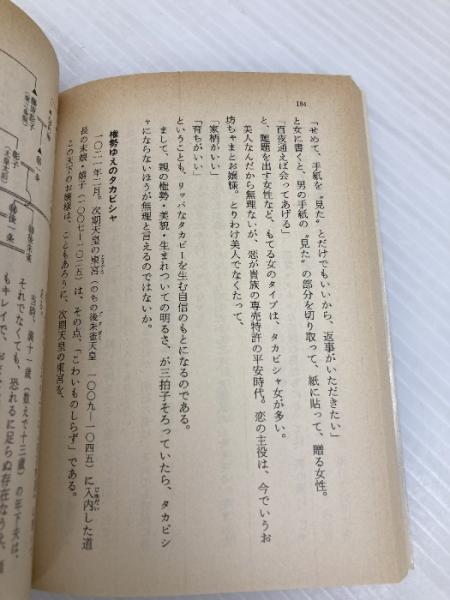 184
「せめて、手紙を〝見た〟とだけでもいいから、返事がいただきたい」
と女に書くと、男の手紙の〝見た〟の部分を切り取って、紙に貼って、贈る女性。
「百夜通えば会ってあげる」
と、難題を出す女性など、もてる女のタイプは、タカビシャ女が多い。
美人なんだから無理ないが、恋が貴族の専売特許の平安時代。恋の主役は、今でいうお
坊ちゃまとお嬢様。とりわけ美人でなくたって、
「家柄がいい」
「育ちがいい」
ということも、リッパなタカビーを生む自信のもとになるのである。
まして、親の権勢・美貌・生まれついての明るさ、が三拍子そろっていたら、タカビシ
ャにならないほうが無理と言えるのではないか。
権勢ゆえのタカビシャ
一〇二一年二月。次期天皇の東宮（のちの後朱雀天皇 一〇〇九―一〇四五）に入内した道
長の末娘・嬉子（一〇〇七―一〇二五）は、その点、「こわいものしらず」である。
この天下のお嬢様は、こともあろうに、次期天皇の東宮を、
後一条
当時、満十二歳（数えで十三歳）の年下夫は、
それでなくても、恐れるに足らぬ存在なうえ、
もキレイで、